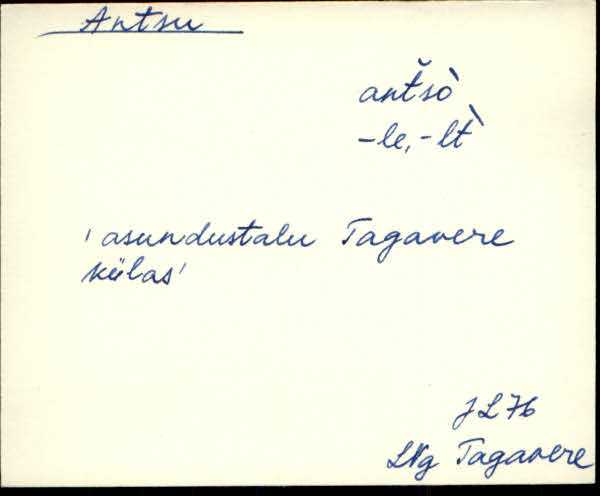 Antsu
antšò
-le, -lt̀
'asundustalu Tagavere
külas'
JL 76
LNg Tagavere